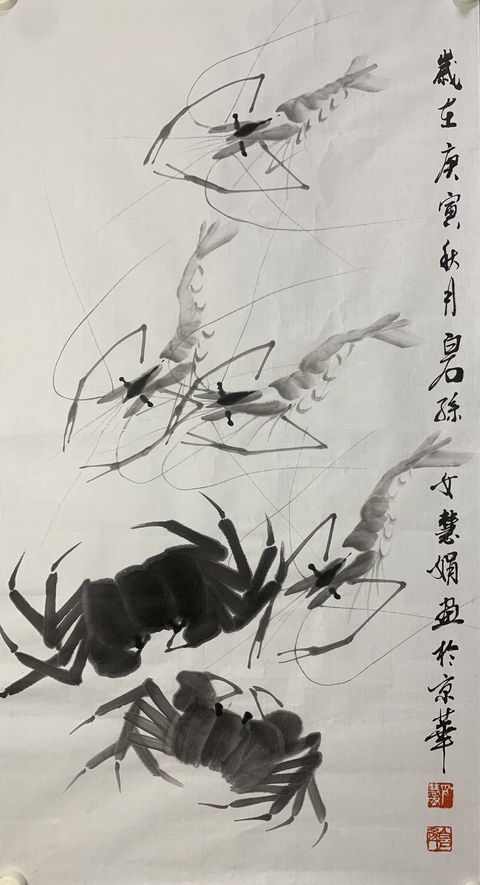 歲在庚寅秋月白石孫女慧娟画於京華